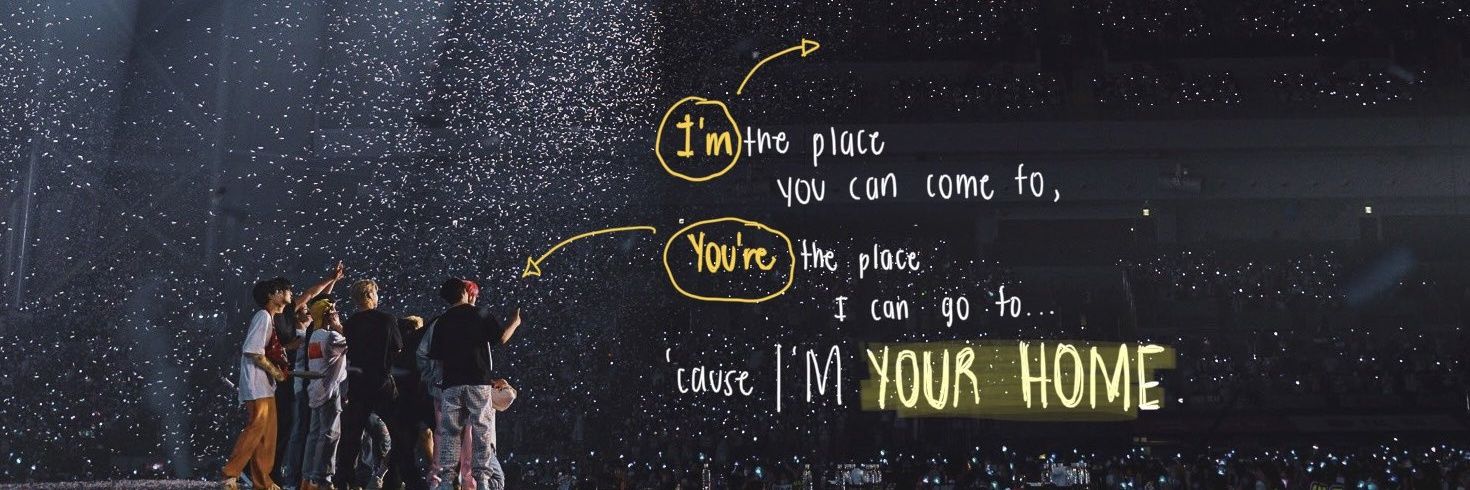 I'm the place
you can come to,
You're the place
I can go to...
'cause I'M YOUR HOME.